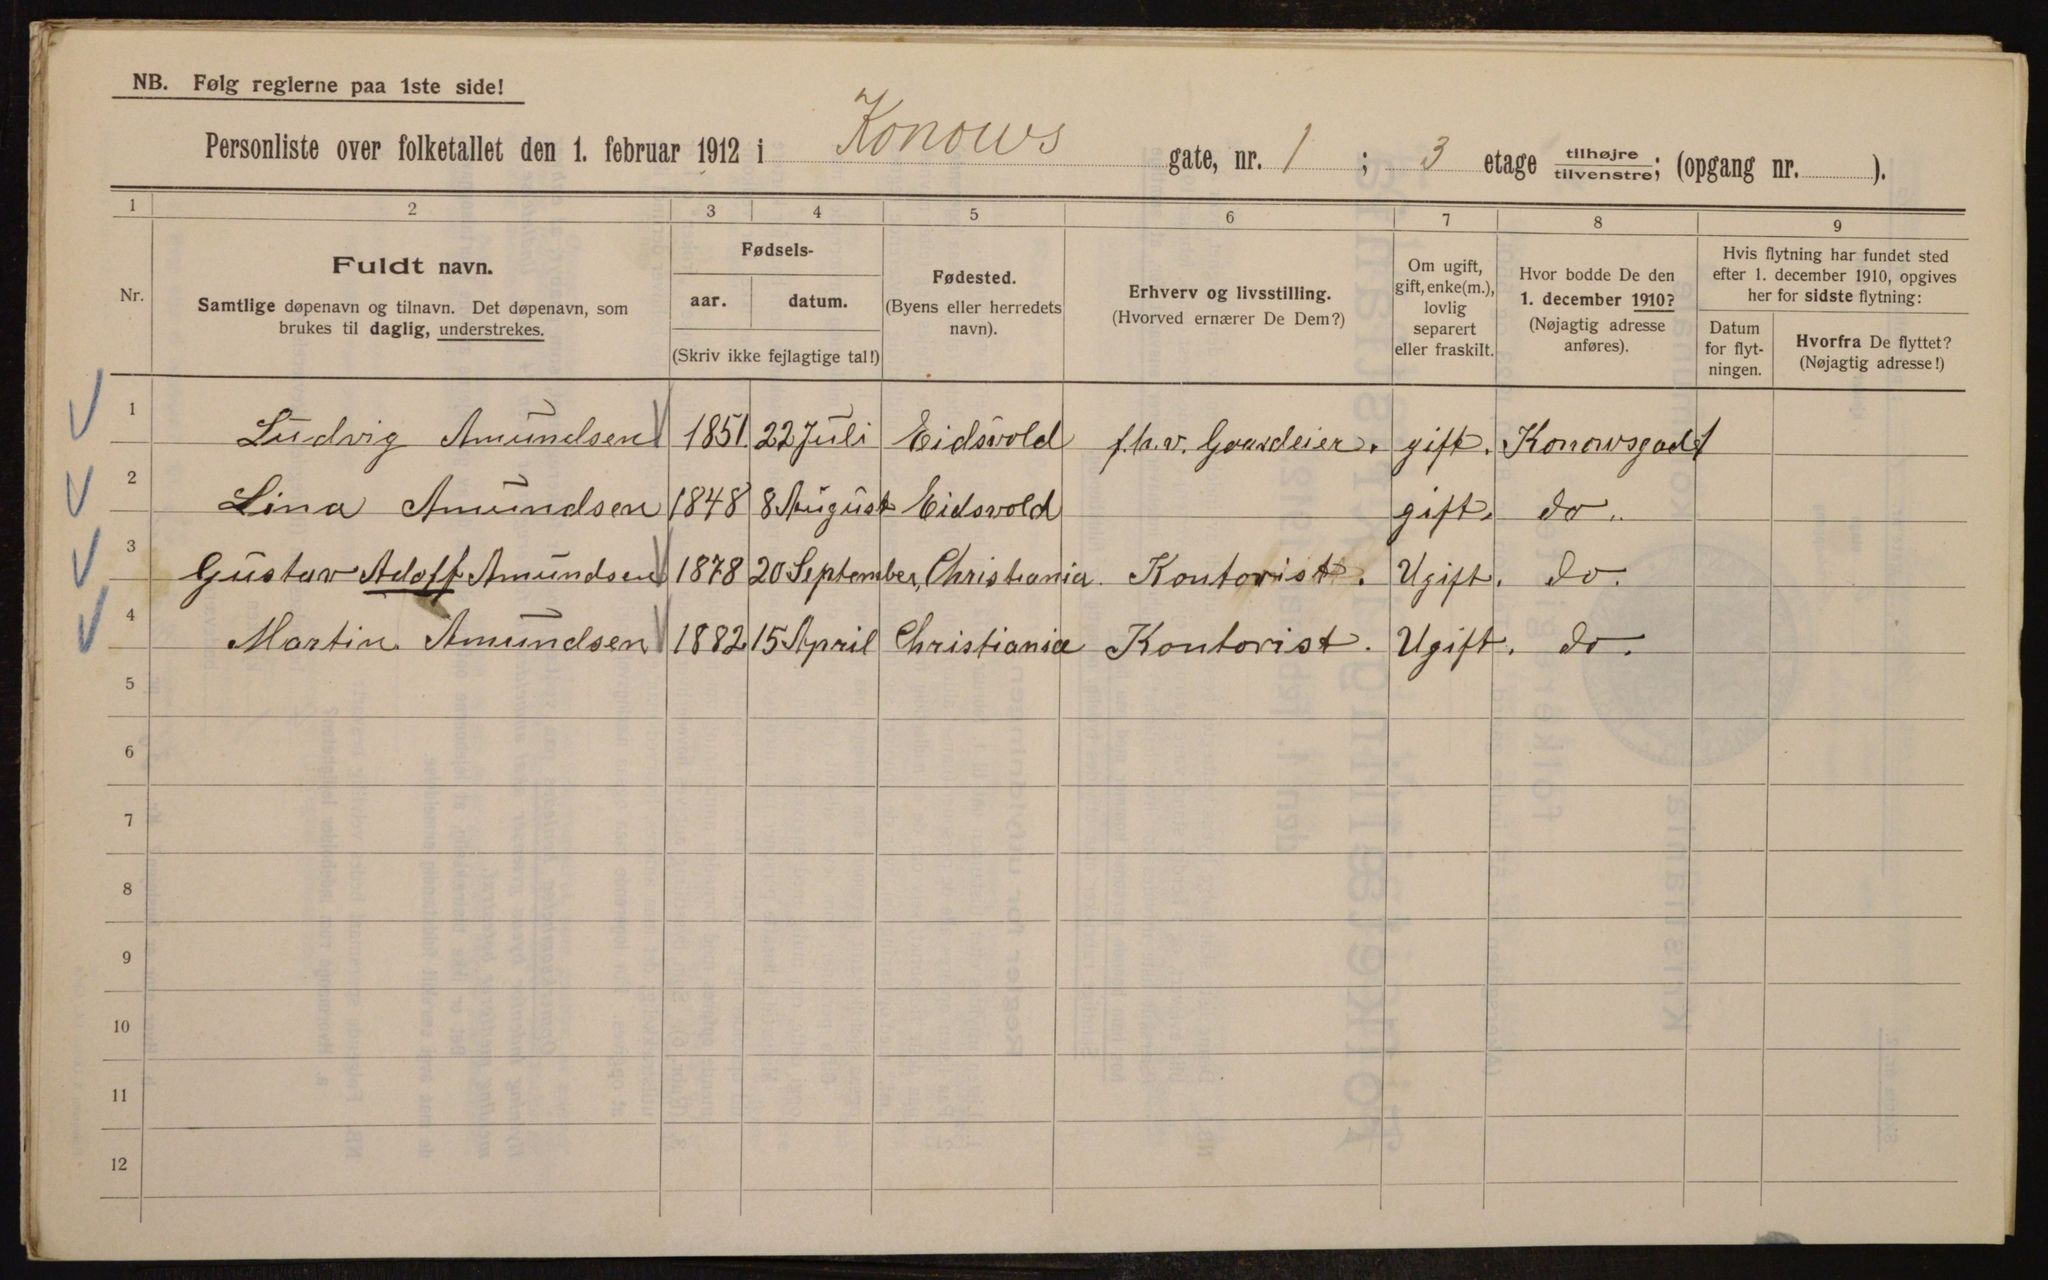 NB. Følg reglerne paa 1ste side!
Personliste over folketallet den 1. februar 1912 i Konows gate, nr. 1 ; 3 etage tilhøjre/tilvenstre; (opgang nr. ).
1 2 3 4 5 6 7 8 9
Nr.
Fuldt navn.
Samtlige døpenavn og tilnavn. Det døpenavn, som
brukes til daglig, understrekes.
Fødsels-
aar. datum.
(Skriv ikke fejlagtige tal!)
Fødested.
(Byens eller herredets
navn).
Erhverv og livsstilling.
(Hvorved ernærer De Dem?)
Om ugift,
gift, enke(m.),
lovlig
separert
eller fraskilt.
Hvor bodde De den
1. december 1910?
(Nøjagtig adresse
anføres).
Hvis flytning har fundet sted
efter 1. december 1910, opgives
her for sidste flytning:
Datum
for flyt-
ningen.
Hvorfra De flyttet?
(Nøjagtig adresse!)
1 Ludvig Amundsen 1851 22 Juli Eidsvold f.h.v. Gaardeier. gift. Konowsgad 1
2 Lina Amundsen 1848 8 August Eidsvold gift. do.
3 Gustav Adolf Amundsen 1878 20 September, Christiania Kontorist. Ugift. do.
4 Martin Amundsen 1882 15 April Christiania Kontorist. Ugift. do.
5
6
7
8
9
10
11
12